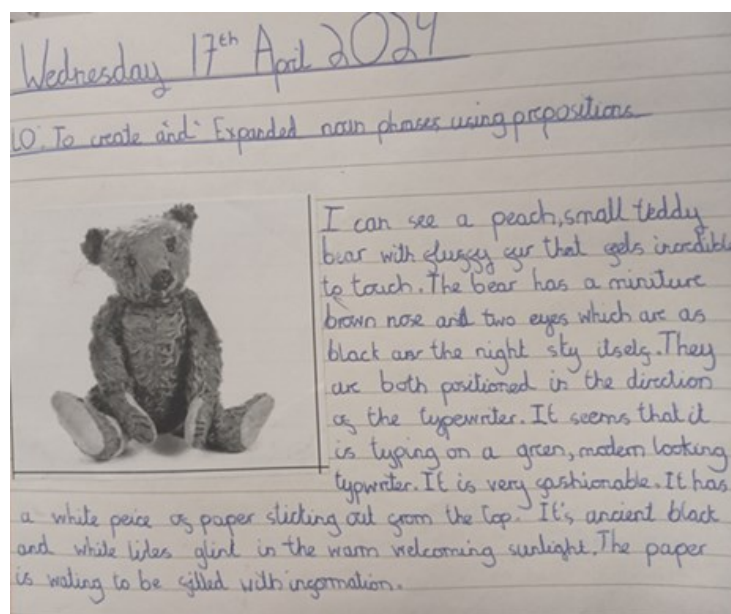 Wednesday 17th April 2024
LO: To create and Expanded noun phrases using prepositions
I can see a peach, small teddy
bear with fluggy fur that feels incredible
to touch. The bear has a miniture
brown nose and two eyes which are as
black as the night sky itself. They
are both positioned in the direction
of the typewriter. It seems that it
is typing on a green, modern looking
typwriter. It is very fashionable. It has
a white peice of paper sticking out from the top. It's ancient black
and white tiles glint in the warm welcoming sunlight. The paper
is wating to be filled with information.